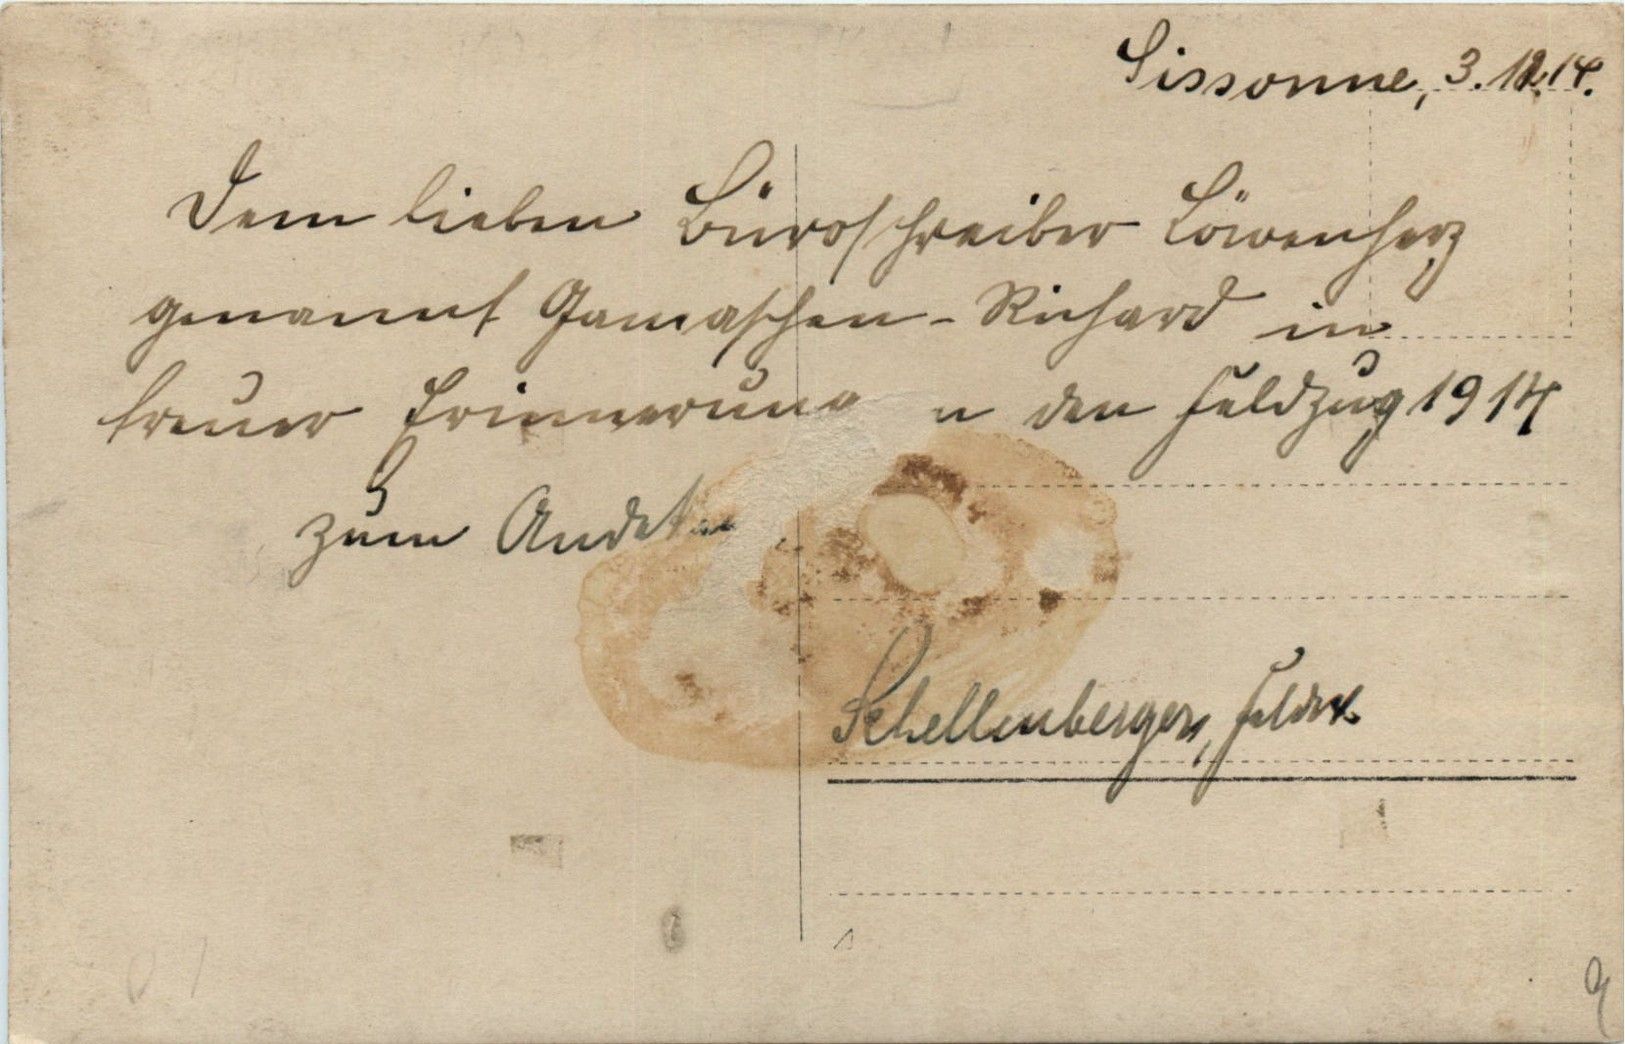 Sissonne, 3.12.14.
Dem lieben Büroschreiber Löwenherz
genannt Gamaschen-Richard in
treuer Erinnerung an den Feldzug 1914
zum Andenken
Schellenberger,